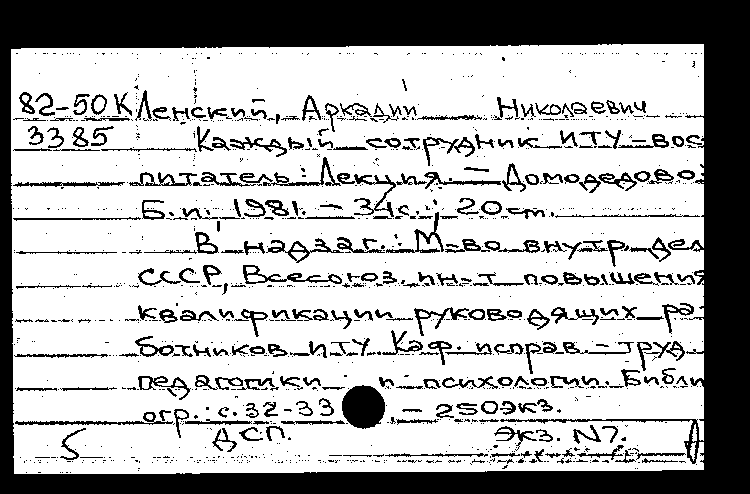 82-50К Ленский, Аркадий Николаевич
3385 Каждый сотрудник ИТУ - вос
питатель: Лекция. - Домодедово:
Б.и. 1981. - 34с.; 20 см.
В надзаг.: М-во внутр. дел
СССР, Всесоюз. ин-т повышения
квалификации руководящих ра-
ботников ИТУ. Каф. исправ.-труд.
педагогики и психологии. Библи
огр.: с. 32-33. - 250 экз.
5 ДСП. экз. N7.